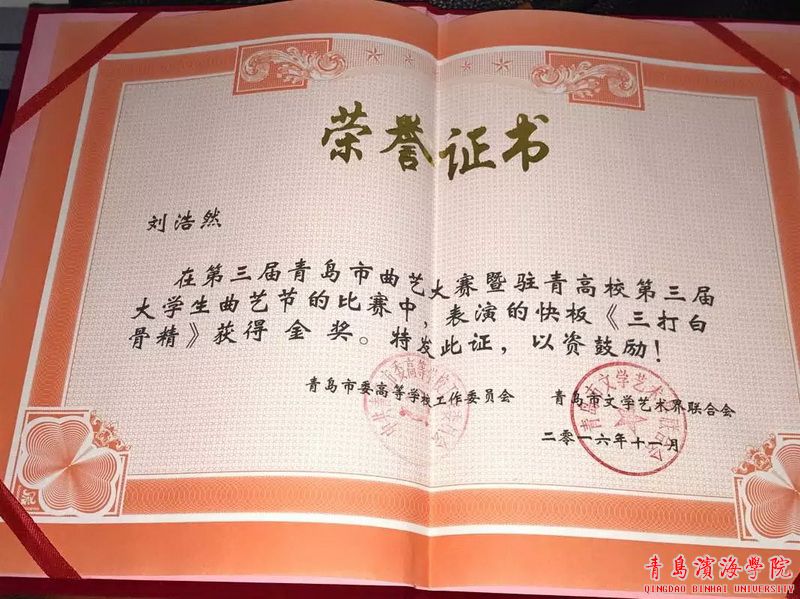 荣誉证书
刘浩然
在第三届青岛市曲艺大赛暨驻青高校第三届
大学生曲艺节的比赛中，表演的快板《三打白
骨精》获得 金 奖。特发此证，以资鼓励！
青岛市委高等学校工作委员会 青岛市文学艺术界联合会
二零一六年十一月
青岛市文学艺术界联合会
青島濱海學院
QINGDAO BINHAI UNIVERSITY